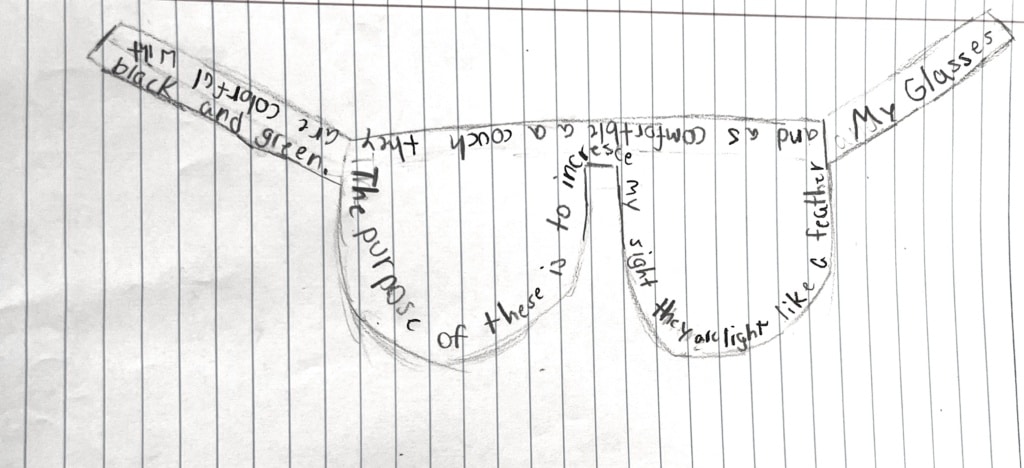 My Glasses
The purpose of these is to increase my sight they are light like a feather
and as comfortble a a couch they
are colorful with
black and green.